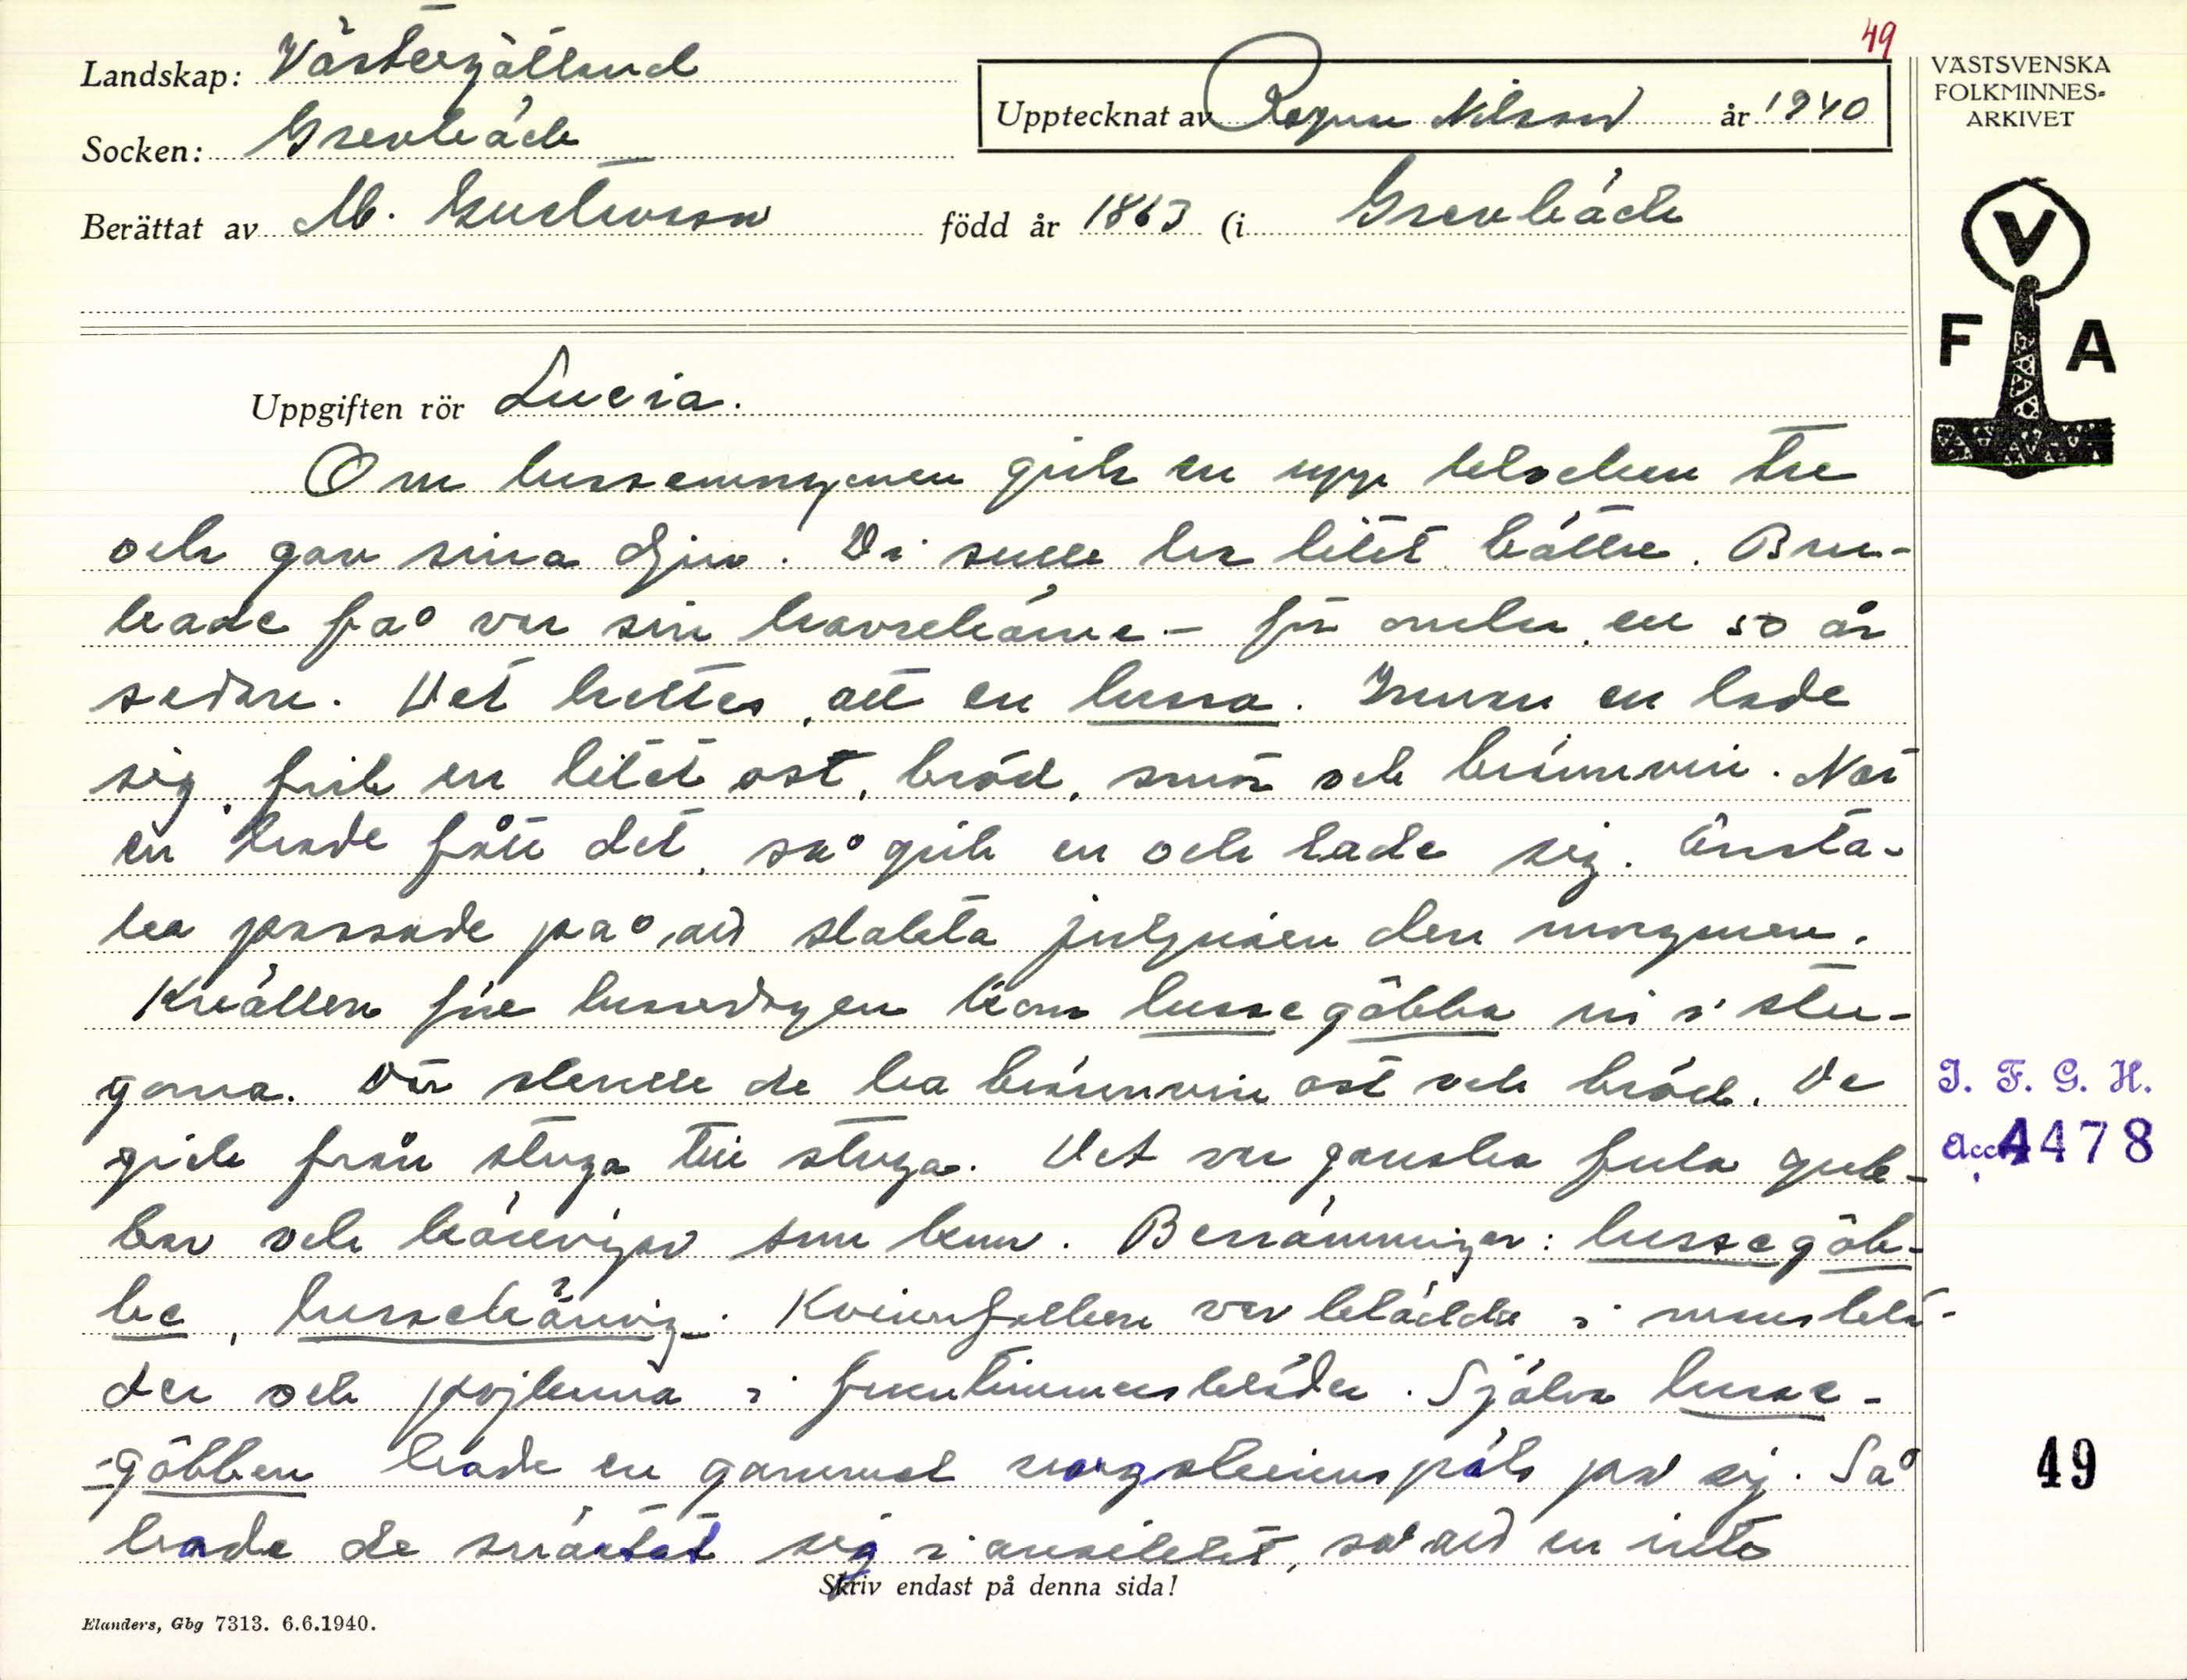 49
Landskap: Västergötland
Upptecknat av Ragnar Nilsson år 1940
Socken: Grevbäck
Berättat av M. Gustavsson född år 1863 (i Grevbäck
VÄSTSVENSKA
FOLKMINNES-
ARKIVET
V
F A
Uppgiften rör Lucia.
Om lussemorgonen gick en upp klockan tre
och gav sina djur. Di skulle ha litet bättre. Bru-
kade få var sin havrekärve – för omkr. en 50 år
sedan. Det hettes, att en lussa. Innan en lade
sig, fick en litet ost, bröd, smör och brännvin. När
en hade fått det, så gick en och lade sig. Ensta-
ka passade på att slakta julgrisen den morgonen.
Kvällen före lussedagen kom lussegöbba in i stu-
gorna. Där skulle de ha brännvin ost och bröd. De
gick från stuga till stuga. Det var ganska fula gub-
bar och käringar som kom. Benämningar: lussegöb-
be, lussekäring. Kvinnfolken var klädda i mansklä-
der och pojkarna i fruntimmerskläder. Själva lusse-
-göbben hade en gammal vargskinnspäls på sig. Så
hade de svärtat sig i ansiktet, så att en inte
Skriv endast på denna sida!
Elanders, Gbg 7313. 6.6.1940.
I. F. G. H.
Acc. 4478
49